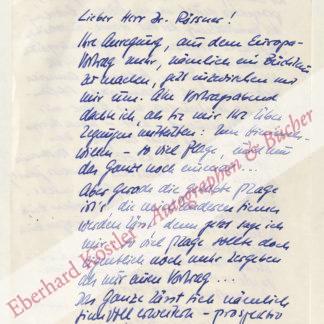 Lieber Herr Dr. Rössner!
Ihre Anregung, aus dem Europa-
Vortrag mehr, nämlich ein Büchlein
zu machen, geht inzwischen mit
mir um. Am Vortragsabend
dachte ich, als Sie mir Ihre Über-
zeugungen mitteilten: Um
willen - so viel Plage, und nun
das Ganze noch einmal...
Aber gerade die Plage
ist's, die mich anderen Sinnes
werden lässt, denn jetzt sage ich
mir: so viel Plage sollte doch
eigentlich noch mehr ergeben
als nur einen Vortrag...
Das Ganze lässt sich nämlich
sinnvoll erweitern - prospektiv
Eberhard Köstler Autographen & Bücher